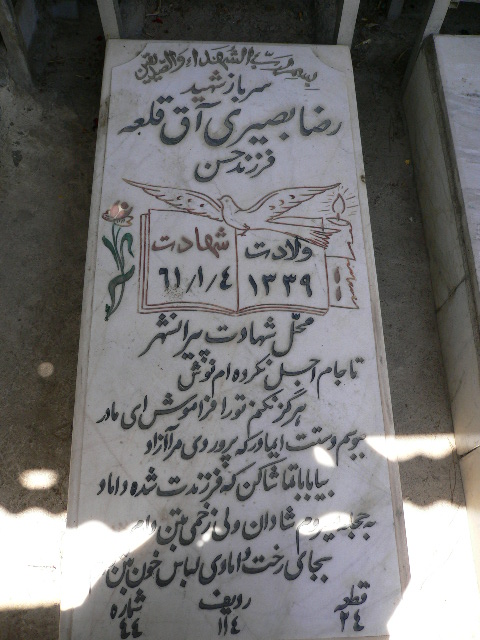 بسم رب الشهداء والصدیقین
سرباز شهید
رضا بصیری آق قلعه
فرزند حسن
ولادت
۱۳۳۹
شهادت
۶۱/۱/۴
محل شهادت پیرانشهر
تا جام اجل نکرده ام نوش
هرگز نکنم تو را فراموش ای مادر
ببوسم دستت ای مادر که پروردی مرا آزاد
بیا بابا تماشا کن که فرزندت شده داماد
به حجله میروم شادان ولی زخمی بتن دارم
بجای رخت دامادی لباس خون بتن
قطعه
۲۴
ردیف
۱۱۴
شماره
۴۴